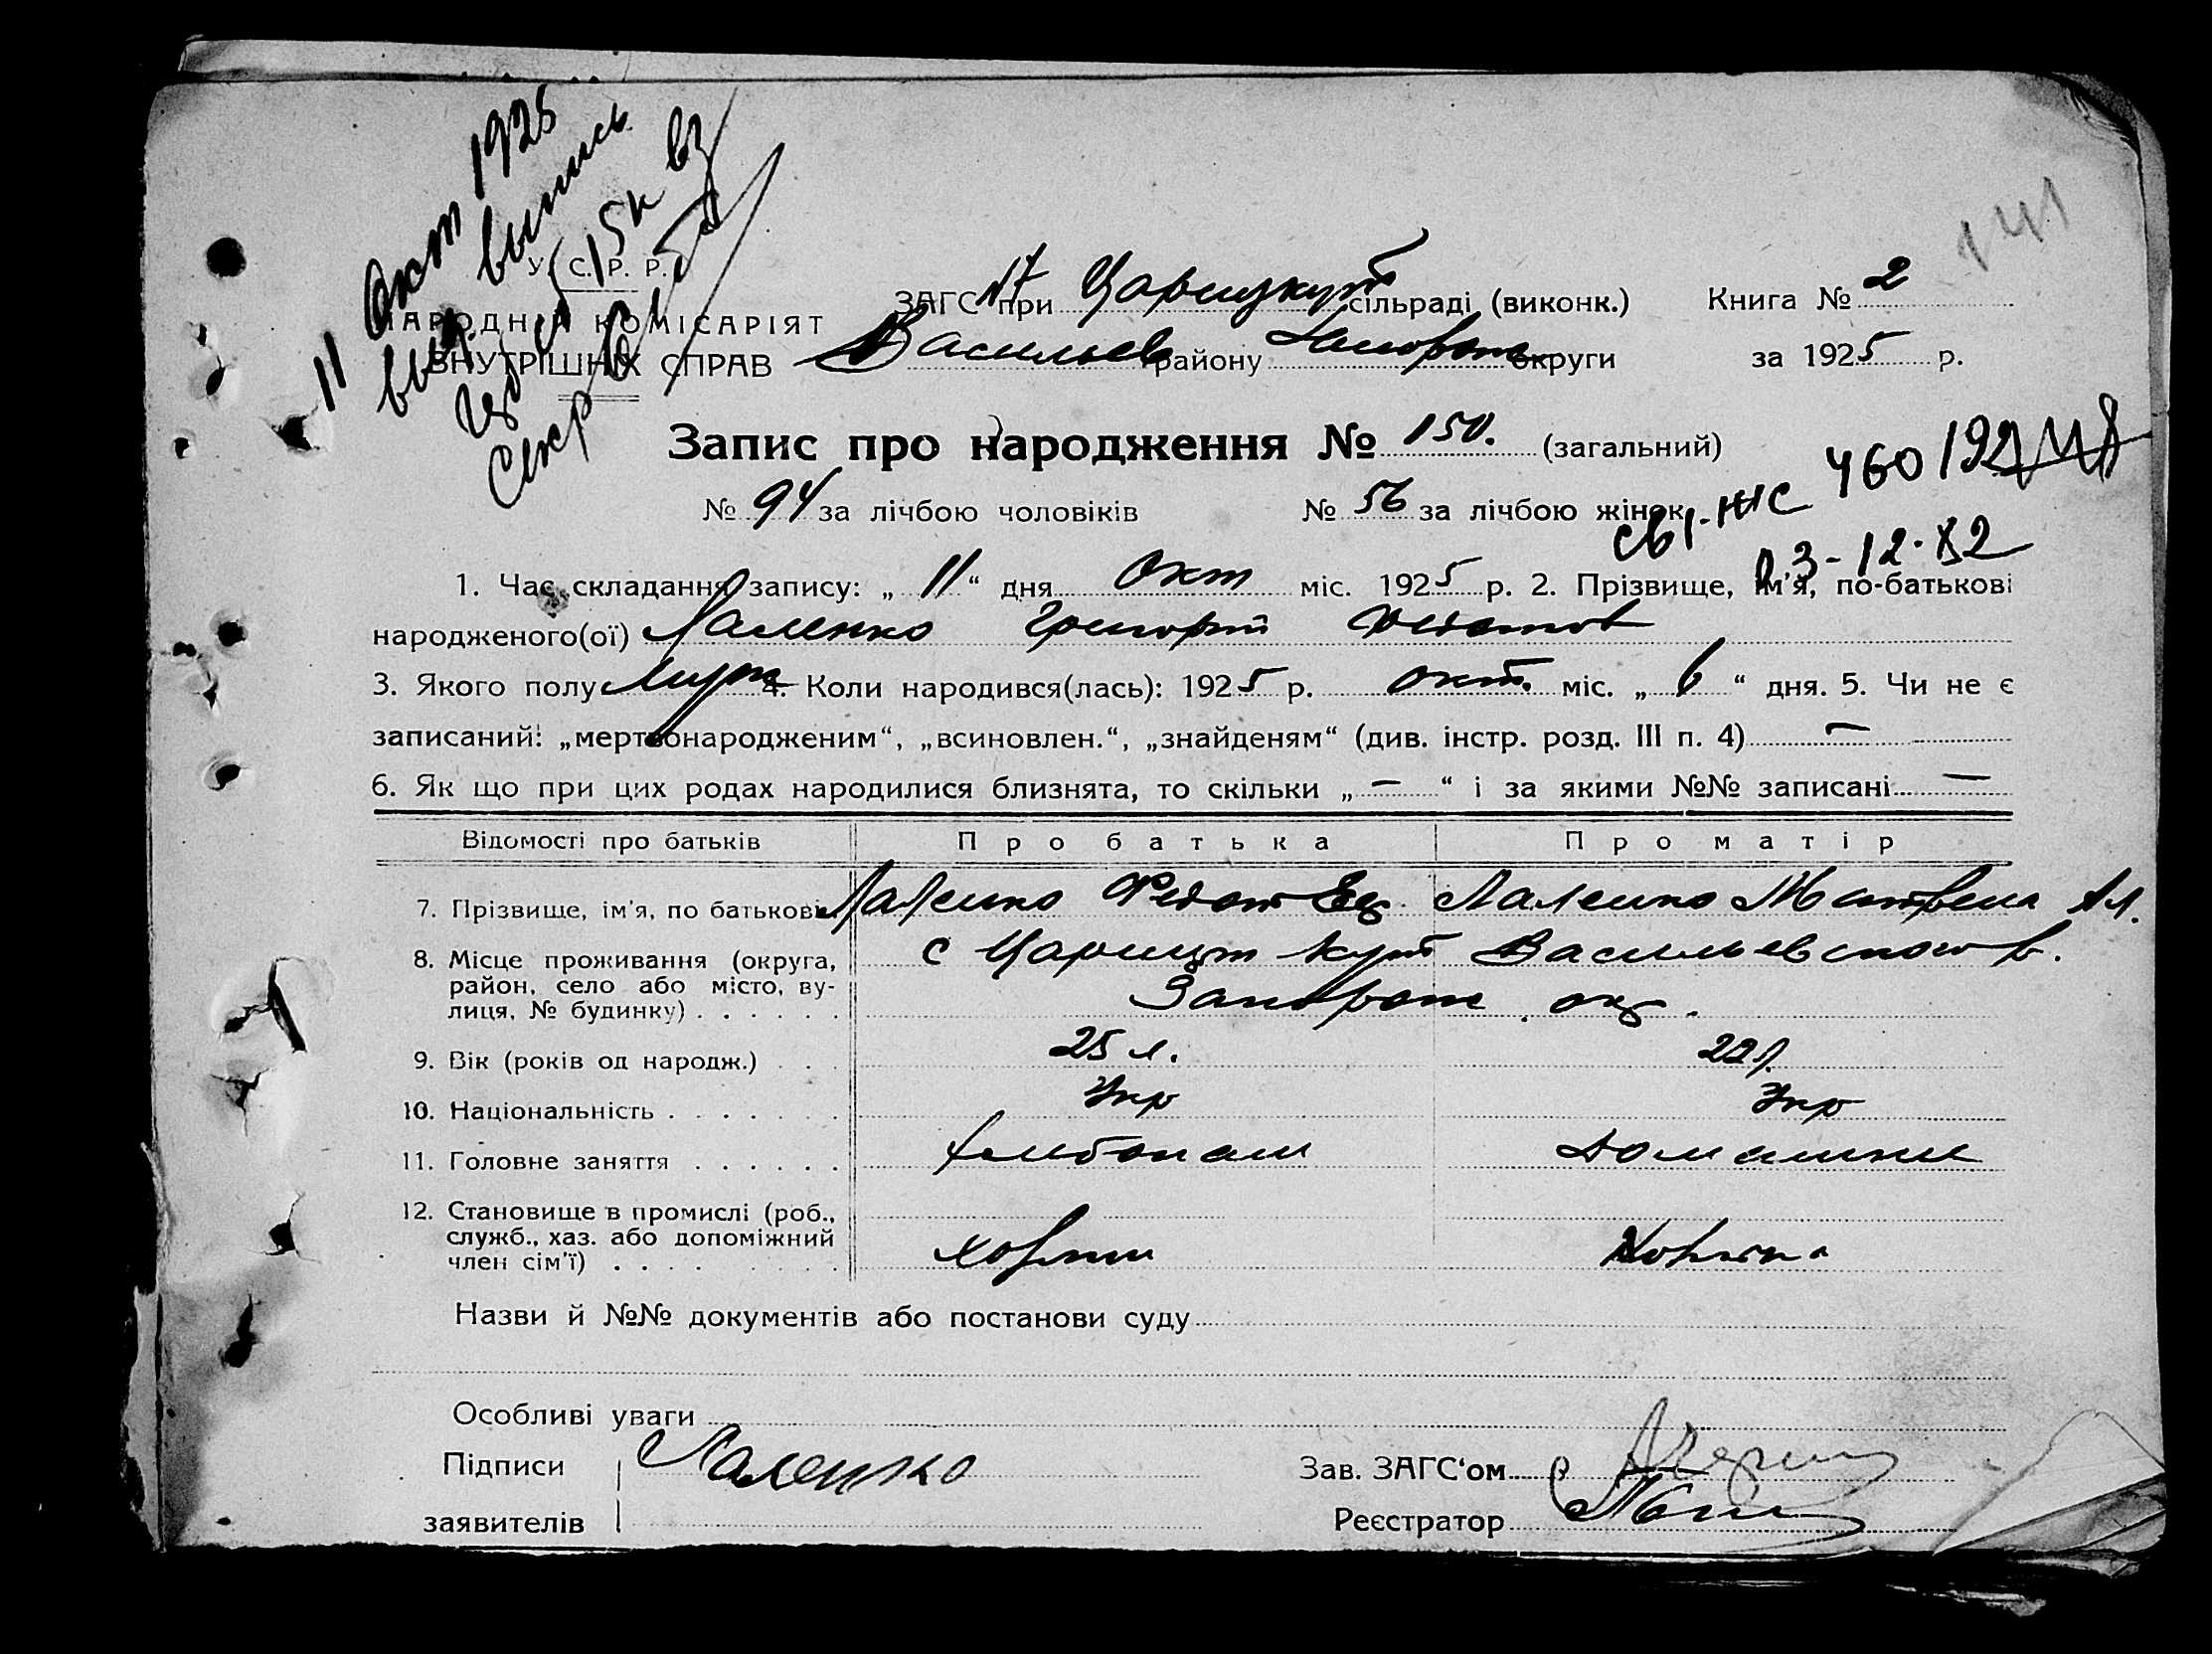 11 Окт 1925
выпись
15к
141
У. С. Р. Р.
НАРОДНІЙ КОМІСАРІЯТ
ВНУТРІШНІХ СПРАВ
ЗАГС №7 при Царицкут сільраді (виконк.) Книга № 2
Васильев району Запорож округи за 1925 р.
Запис про народження № 150. (загальний)
№ 94 за лічбою чоловіків № 56 за лічбою жінок
460
3-12-82
1. Час складання запису: „ 11 “ дня Окт міс. 1925 р. 2. Прізвище, ім'я, по-батькові
народженого(ої) Лаленко Григорий Федотов
3. Якого полу муж 4. Коли народився(лась): 1925 р. окт. міс. „ 6 “ дня. 5. Чи не є
записаний: „мертвонародженим“, „всиновлен.“, „знайденям“ (див. інстр. розд. III п. 4) —
6. Як що при цих родах народилися близнята, то скільки „ — “ і за якими №№ записані —
Відомості про батьків Про батька Про матір
7. Прізвище, ім'я, по батькові Лаленко Федот Лаленко Ал.
8. Місце проживання (округа, район, село або місто, вулиця, № будинку) . . . . . . с Царицин Кут Васильевского р.
Запорож. окр.
9. Вік (років од народж.) . . . 25 л. 22 л.
10. Національність . . . . . . . Укр Укр
11. Головне заняття . . . . . . хлибопаш Домашние
12. Становище в промислі (роб., служб., хаз. або допоміжний член сім'ї) . . . . . . . . хозяин
Назви й №№ документів або постанови суду
Особливі уваги
Підписи заявителів Лаленко
Зав. ЗАГС‘ом
Реєстратор